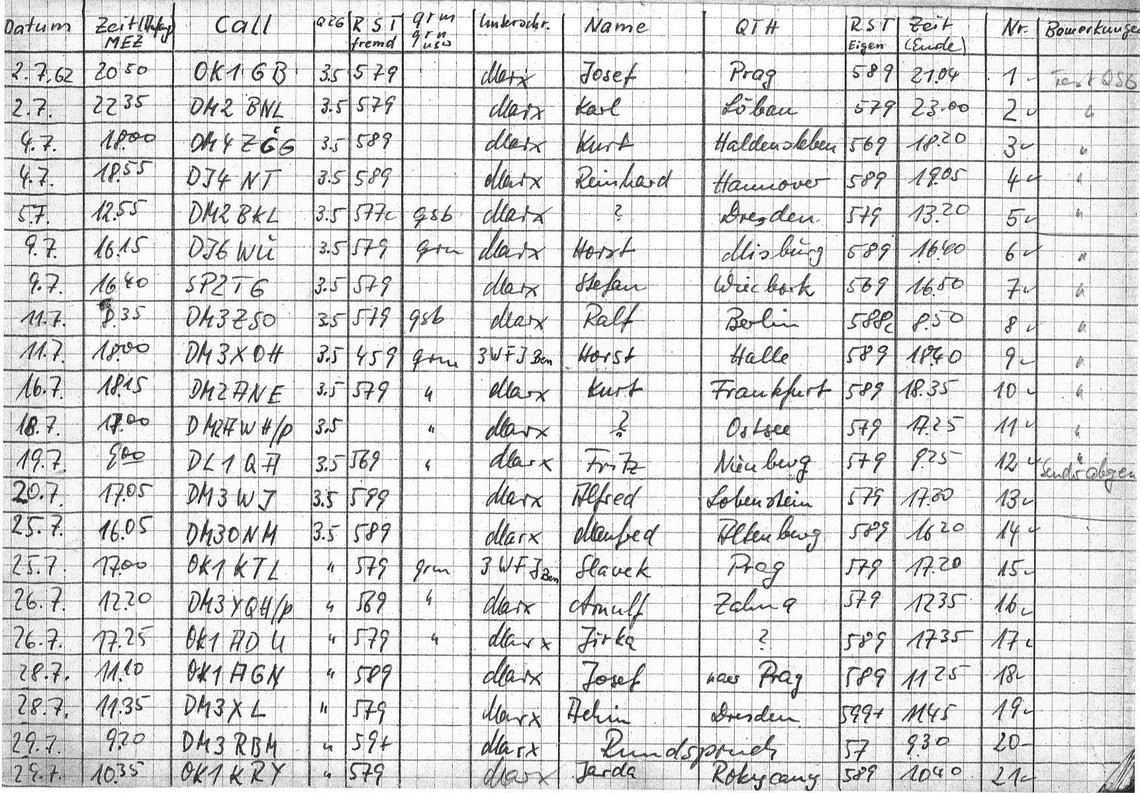 Datum Zeit MEZ Call QRG RST fremd qrm qrn usw Unterschr. Name QTH RST Eigen Zeit (Ende) Nr. Bemerkungen
2.7.62 20 50 OK1GB 3.5 579 Marx Josef Prag 589 21.04 1 Test QSO
2.7. 22 35 DM2 BNL 3.5 579 Marx Karl Löbau 579 23.00 2 "
4.7. 18.00 DM4ZGG 3.5 589 Marx Kurt Haldensleben 569 18.20 3 "
4.7. 18.55 DJ4 NT 3.5 589 Marx Reinhard Hannover 589 19.05 4 "
5.7. 12.55 DM2 BKL 3.5 577c qsb Marx ? Dresden 579 13.20 5 "
9.7. 16.15 DJ6 WU 3.5 579 qrm Marx Horst Misburg 589 16.40 6 "
9.7. 16 40 SP2TG 3.5 579 Marx Stefan Wiecbork 569 16.50 7 "
11.7. 8.35 DM3ZSO 3.5 579 qsb Marx Ralf Berlin 588c 8.50 8 "
11.7. 18.00 DM3XOH 3.5 459 qrm 3WFJ Ben Horst Halle 589 18.40 9 "
16.7. 18.15 DM2ANE 3.5 579 " Marx Kurt Frankfurt 589 18.35 10 "
18.7. 17.00 DM2AWH/p 3.5 " Marx ? Ostsee 579 17.25 11 "
19.7. 9.00 DL1QA 3.5 569 " Marx Fritz Nienburg 579 9.25 12 "
20.7. 17.05 DM3WJ 3.5 599 Marx Alfred Lobenstein 579 17.30 13
25.7. 16.05 DM3ONM 3.5 589 Marx Manfred Altenburg 589 16 20 14
25.7. 17.00 OK1KTL " 579 qrm 3 WFJ Ben Slavek Prag 579 17.20 15
26.7. 12.20 DM3YQH/p " 569 " Marx Arnulf Zahna 579 12 35 16
26.7. 17.25 OK1ADU " 579 " Marx Jirka ? 589 17 35 17
28.7. 11.10 OK1AGN " 589 Marx Josef Prag 589 11 25 18
28.7. 11.35 DM3XL " 579 Marx Achim Dresden 599+ 11 45 19
29.7. 9.20 DM3RBM " 59+ Marx Rundspruch 57 9.30 20
29.7. 10.35 OK1KRY " 579 Marx Jarda Rokycany 589 10 40 21